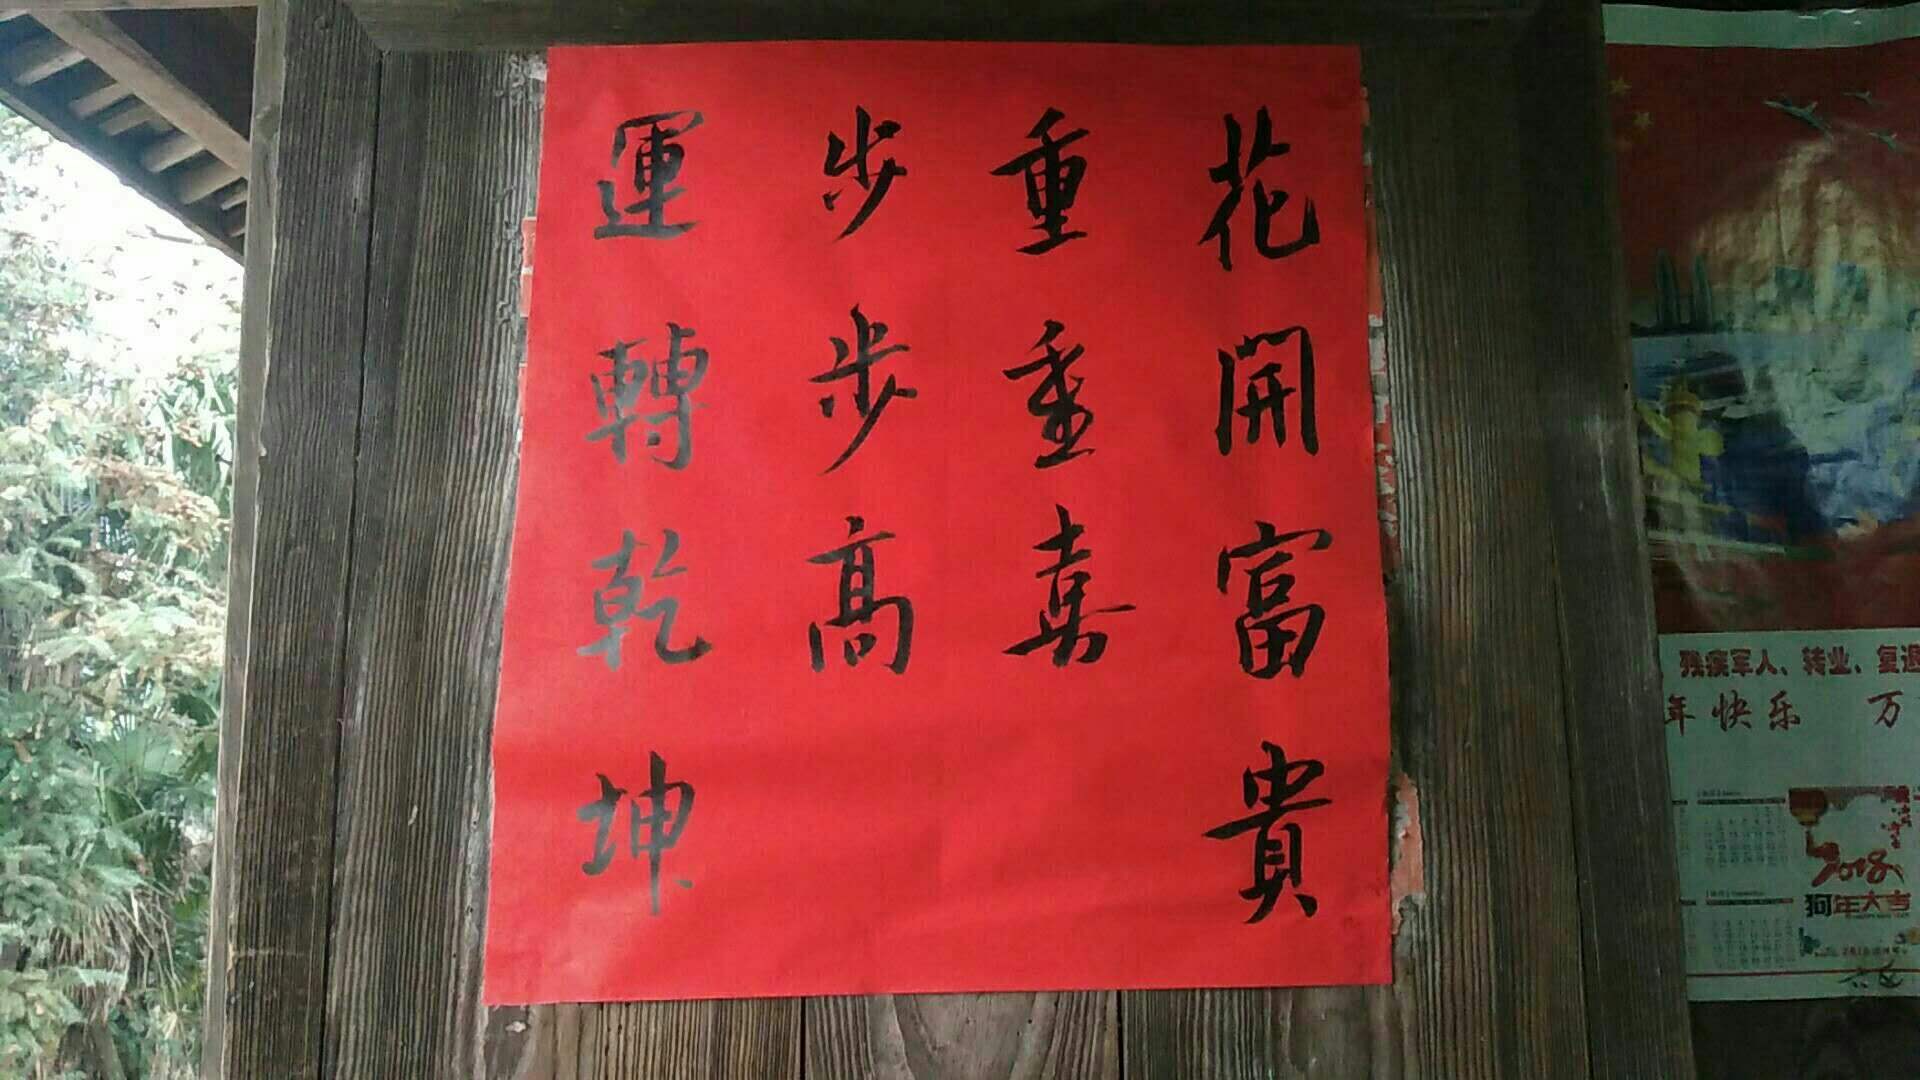 花開富貴
重重喜
步步高
運轉乾坤
残疾军人、转业、复退
年快乐 万
2018
狗年大吉